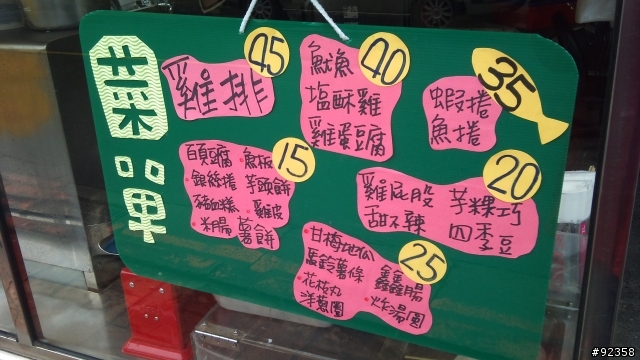 菜單
雞排
45
魷魚
塩酥雞
雞蛋豆腐
40
蝦捲
魚捲
35
百頁豆腐 魚板
銀絲捲 芋頭餅
豬血糕 雞皮
米腸 薯餅
15
雞屁股 芋粿巧
甜不辣 四季豆
20
甘梅地瓜
馬鈴薯條
花枝丸
洋蔥圈
鑫鑫腸
炸湯圓
25
#92358